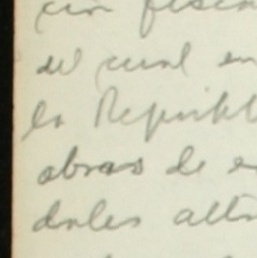 cia fisca
del cual en
la Repúbl
obras de e
dales alt